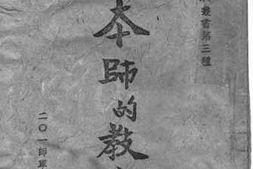 叢書第三種
本師的教
二〇一師軍